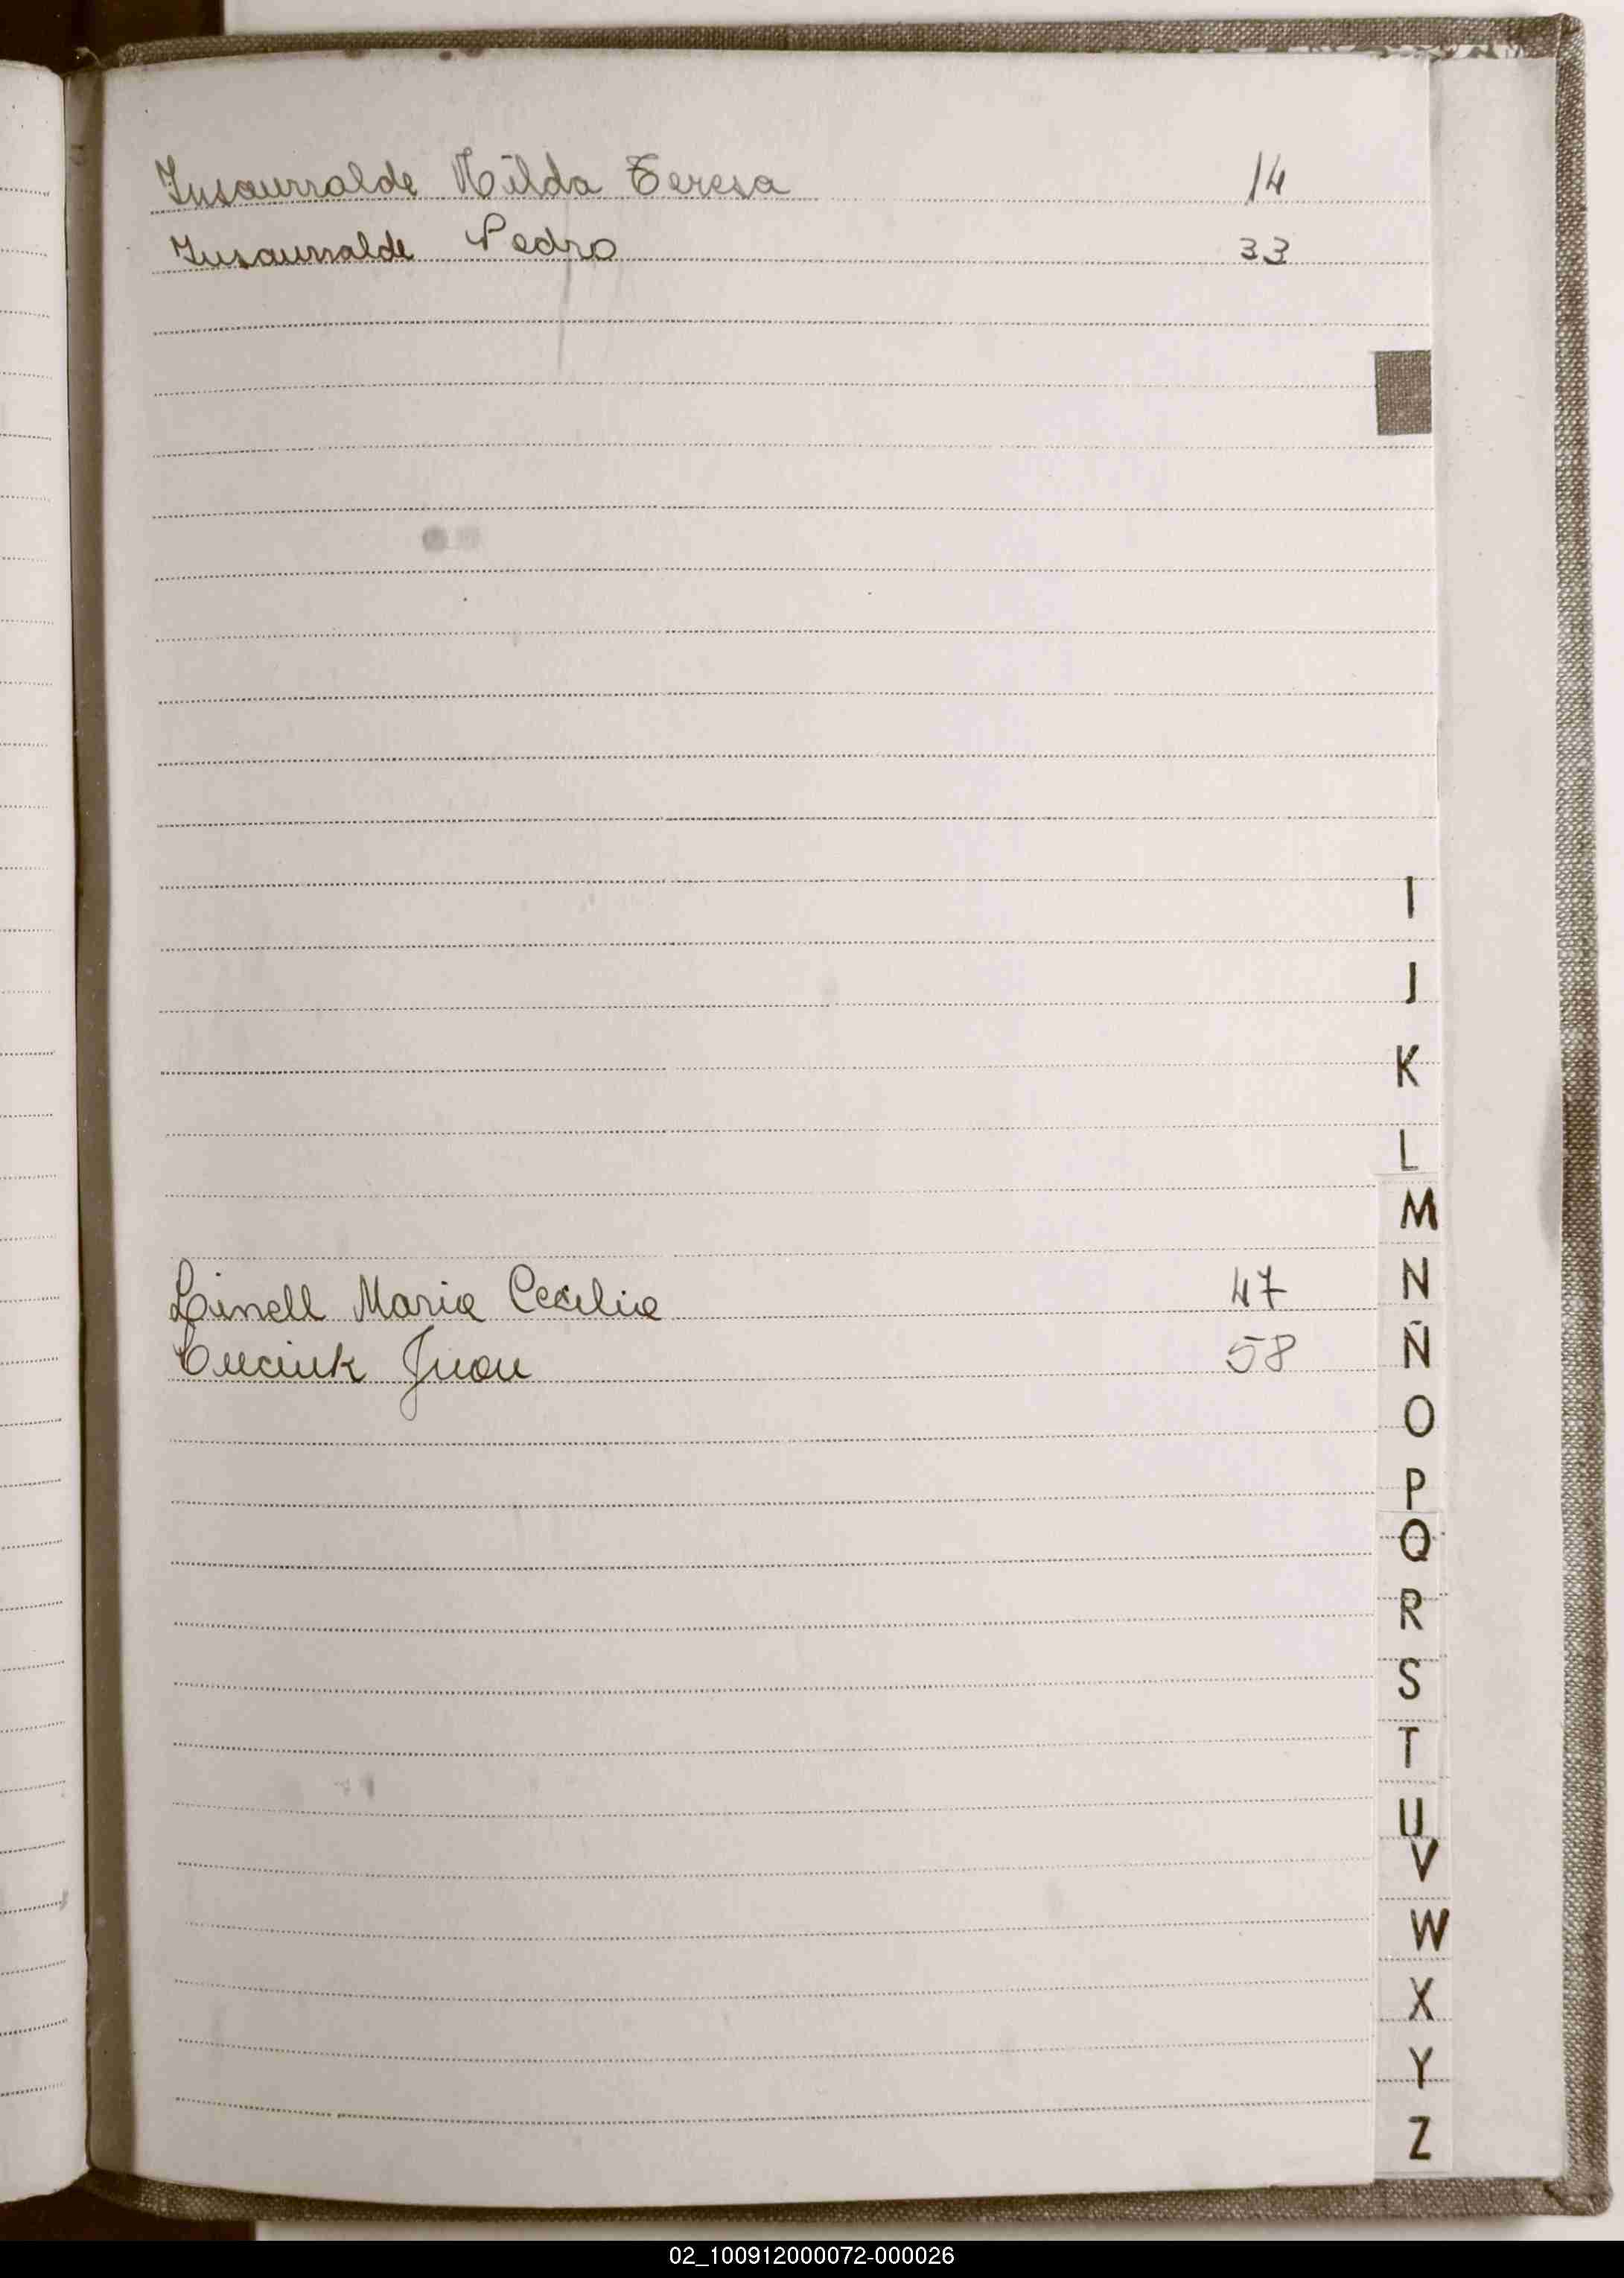 Insaurralde Hilda Teresa 14
Insaurralde Pedro 33
Linell Maria Cecilia 47
Luciuk Juan 58
I
J
K
L
M
N
Ñ
O
P
Q
R
S
T
U
V
W
X
Y
Z
02_100912000072-000026